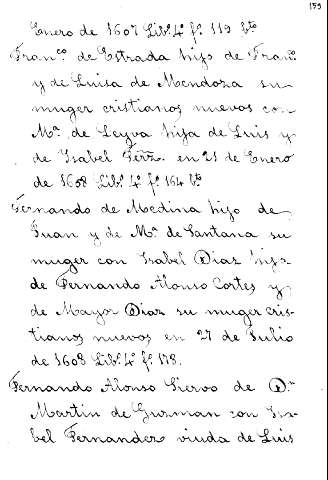 159
Enero de 1607 Lib.º 4º fº. 119 bto
Fran.co de Estrada hijo de Fran.co
y de Luisa de Mendoza su
muger cristianos nuevos con
M.ª de Leyva hija de Luis y
de Isabel Frrz. en 21 de Enero
de 1608 Lib.º 4º fº. 164 bto
Fernando de Medina hijo de
Juan y de M.ª de Santana su
muger con Isabel Diaz hija
de Fernando Alonso Cortes y
de Mayor Diaz su muger cris-
tianos nuevos en 27 de Julio
de 1608 Lib.º 4º fº. 178.
Fernando Alonso Siervo de D.n
Martin de Guzman con Isa-
bel Fernandez viuda de Luis